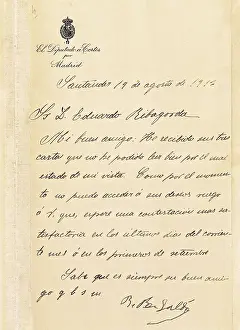 El Diputado a Cortes
por
Madrid
Santander 19 de agosto de 1912
Sr D. Eduardo Ribagorda
Mi buen amigo: He recibido sus tres
cartas que no he podido leer bien por el mal
estado de mi vista. Como por el momento
no puedo acceder á sus deseos ruego
á V. que espere una contestación mas sa-
tisfactoria en los ultimos dias del corrien-
te mes ó en los primeros de setiembre
Sabe que es siempre su buen ami-
go q b s m
B. Perez Galdós